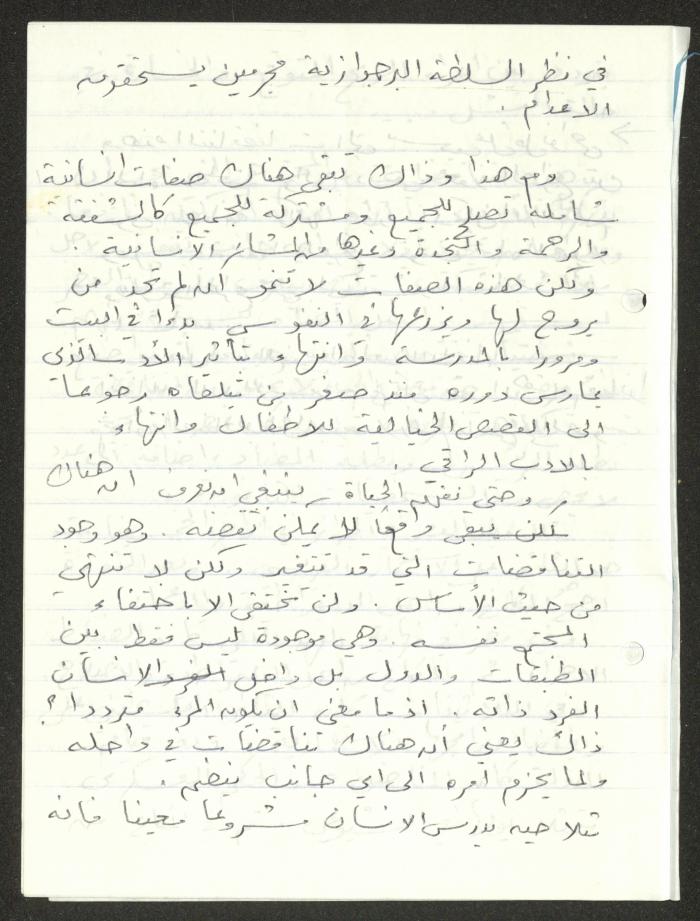 في نظر السلطة البرجوازية مجرمين يستحقون
الاعدام.
ومع هذا وذاك تبقى هناك صفات انسانية
شاملة تصلح للجميع ومشتركة للجميع كالشفقة
والرحمة والنجدة وغيرها من المشاعر الانسانية.
ولكن هذه الصفات لا تنمو ان لم تجد من
يروج لها ويزرعها في النفوس بدءا في البيت
ومرورا بالمدرسة وانتهاء بتأثير الأدب الذي
يمارس دوره منذ صغر من يتلقاه رضوعا
الى القصص الخيالية للاطفال وانتهاء
بالادب الراقي.
وحتى نفهم الحياة ينبغي ان نعرف ان هناك
لكن يبقى واقعا لا يمكن نقضه. وهو وجود
التناقضات التي قد تتغير ولكن لا تنتهي
من حيث الأساس. ولن تختفي الا باختفاء
المجتمع نفسه وهي موجودة ليس فقط بين
الطبقات والدول بل داخل الفرد الانسان
الفرد ذاته. اذ ما معنى ان يكون المرء مترددا؟
ذاك يعني أن هناك تناقضات في داخله
ولما يحزم امره الى اي جانب ينضم.
فلا حين يدرس الانسان مشروعا معينا فانه